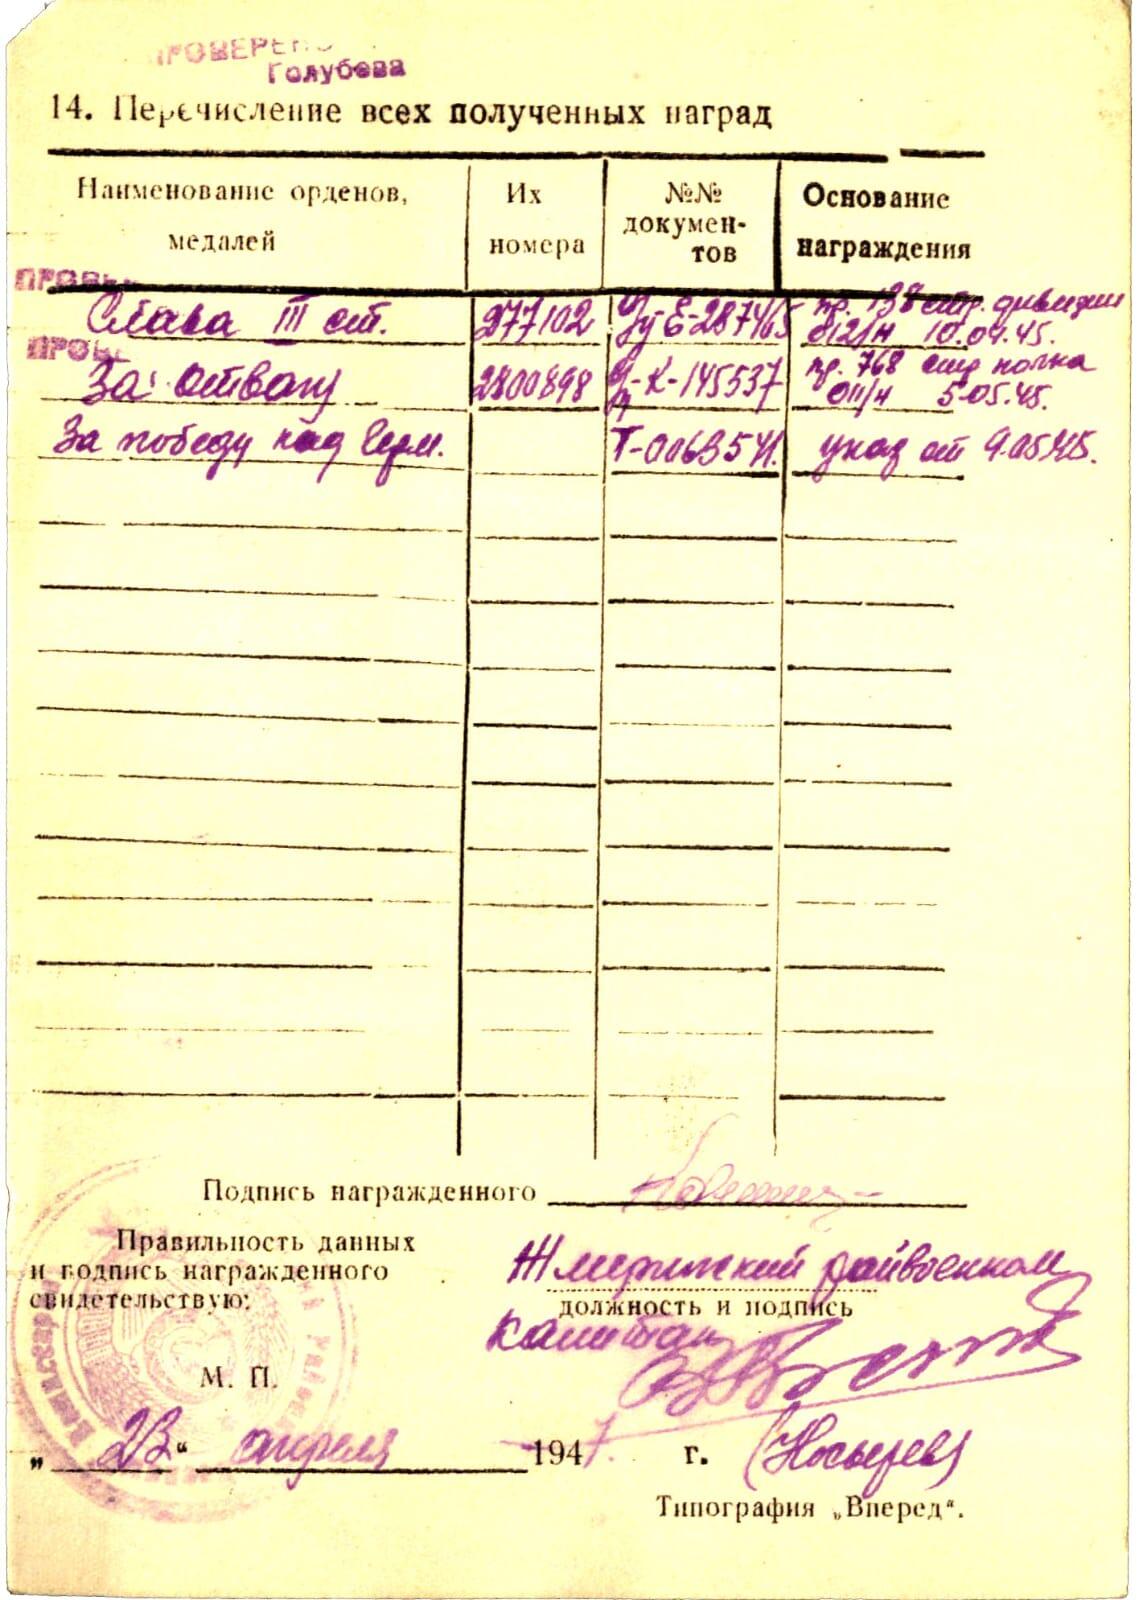 ПРОВЕРЕНО
Голубева
14. Перечисление всех полученных наград
Наименование орденов, медалей | Их номера | №№ докумен-тов | Основание награждения
ПРОВЕ
Слава III ст. | 277102 | Е-287465 | пр. 138 стр. дивизии 012/н 10.04.45.
ПРОВЕ
За отвагу | 2800898 | К-145537 | пр. 768 стр полка 011/н 5.05.45.
За победу над Герм. | | Т-0063541. | указ от 9.05.45.
Подпись награжденного
Правильность данных
и подпись награжденного
свидетельствую:
Жмеринский райвоенком
должность и подпись
капитан
М. П.
„23“ апреля 1947 г. (Носырев)
Типография „Вперед“.